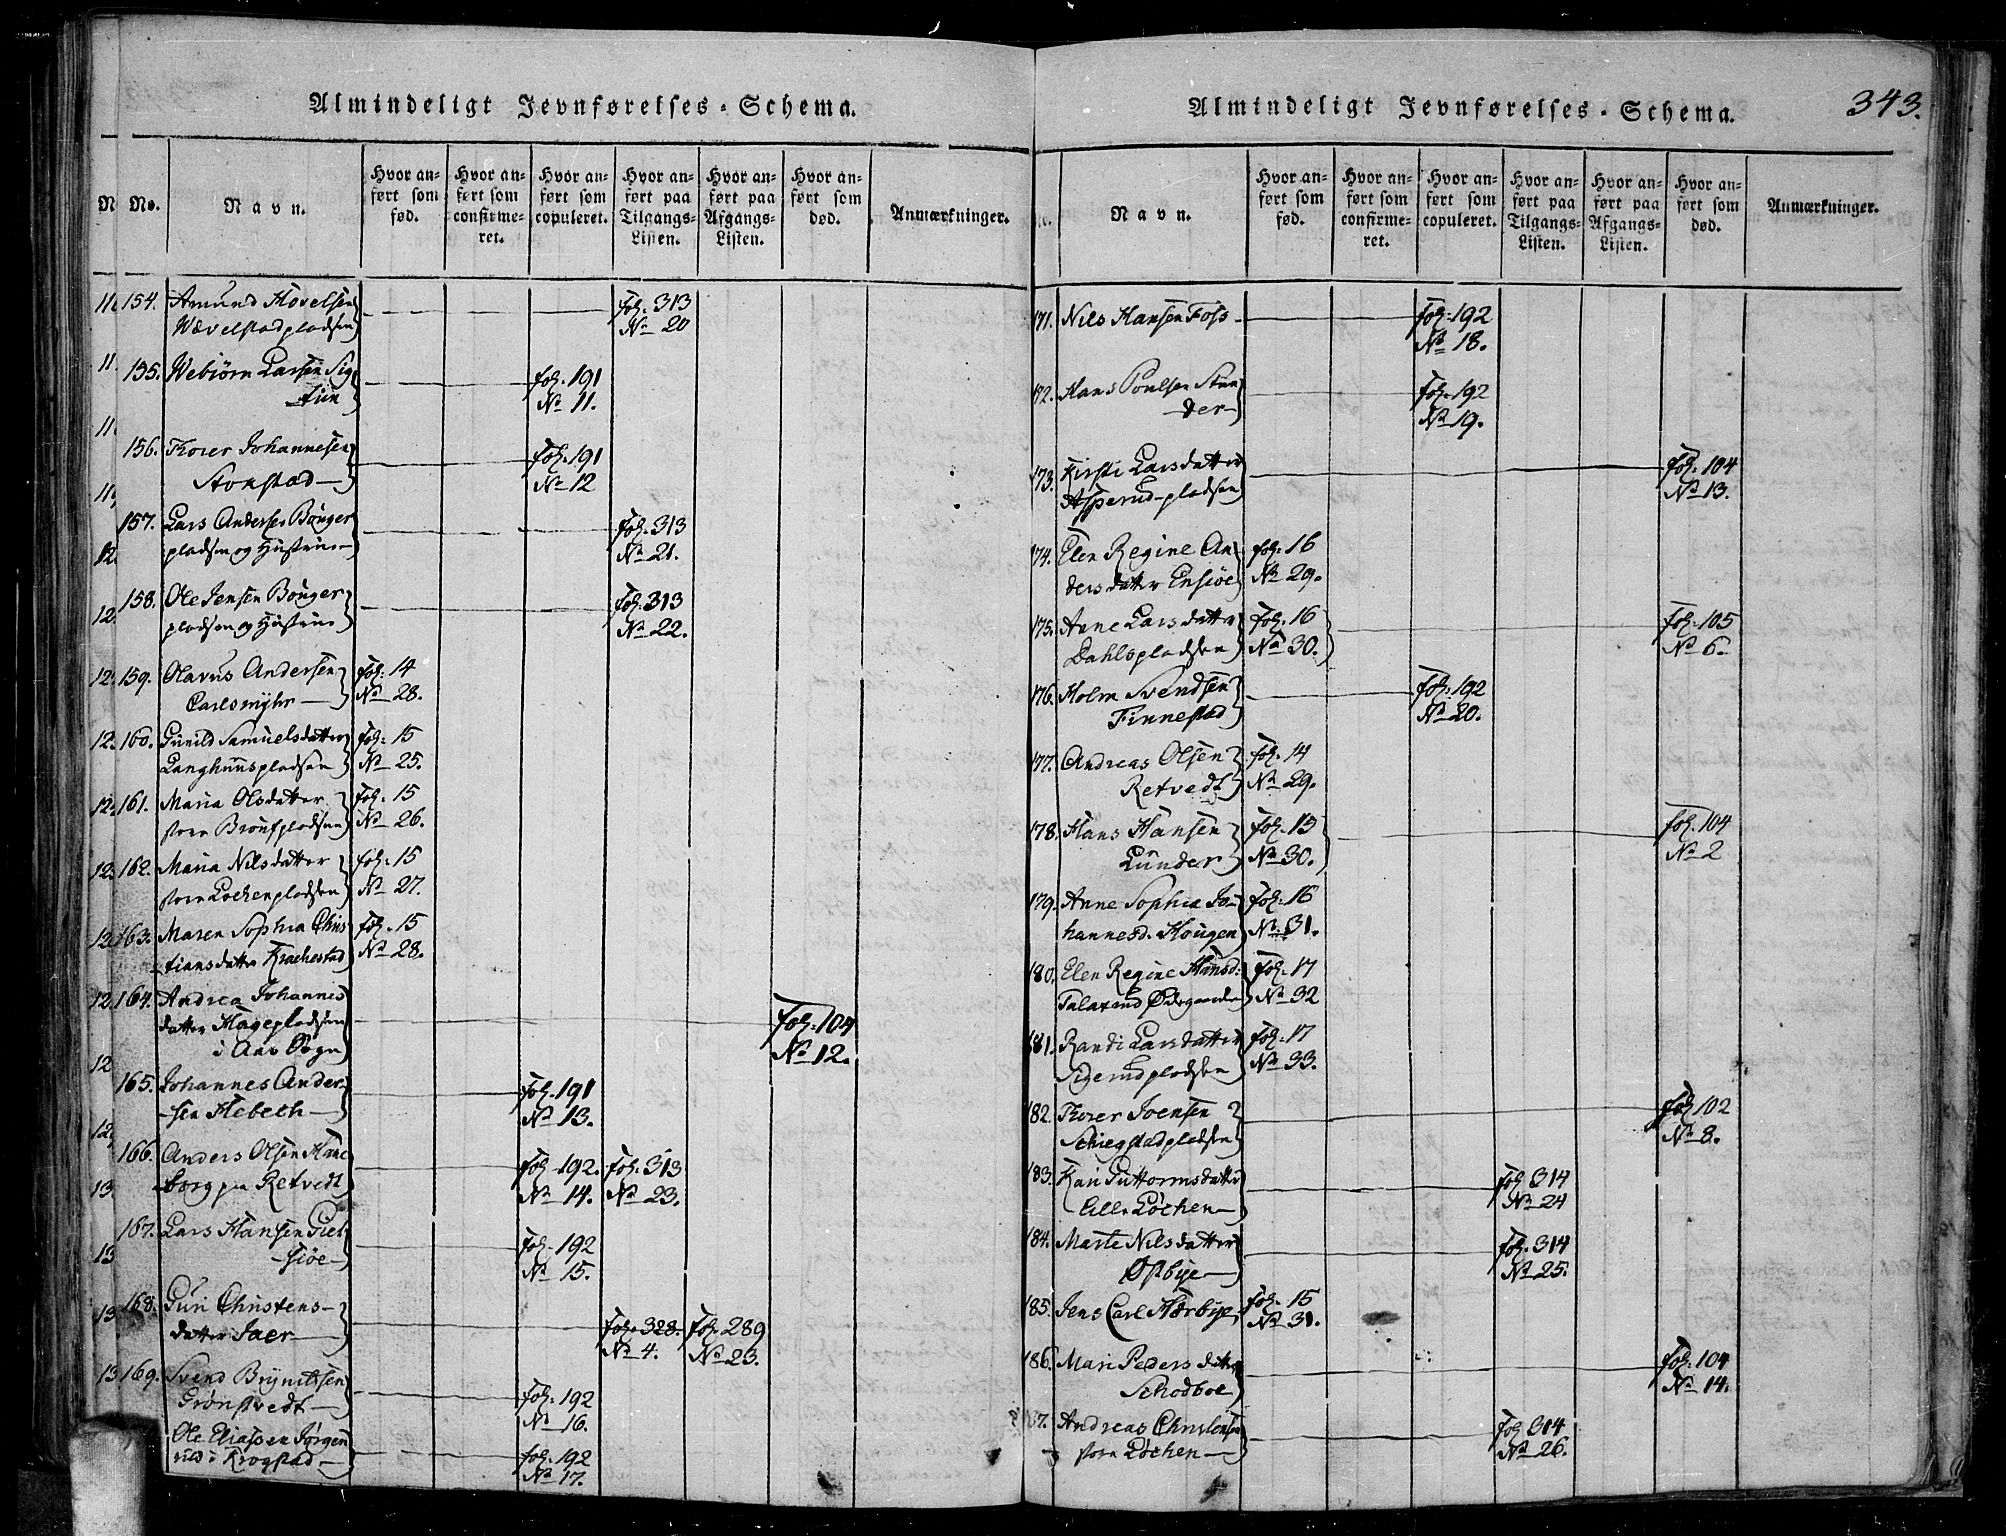 Almindeligt Jevnførelses-Schema.
N No.
Navn.
Hvor anført som fød.
Hvor anført som confirmeret.
Hvor anført som copuleret.
Hvor anført paa Tilgangs-Listen.
Hvor anført paa Afgangs-Listen.
Hvor anført som død.
Anmærkninger.
154. Amund Hovelsen fol. 313
Wævelstadpladsen No 20
155. Webiørn Larsen Sig fol. 191
tun No 11.
156. Thorer Johannesen fol. 191
Stonstad No 12
157. Lars Andersen Bønger fol. 313
pladsen og Hustrue No 21.
158. Ole Jensen Bønger fol. 313
pladsen og Hustrue No 22.
159. Olavus Andersen fol. 14
Carlsmyhr No 28.
160. Gunild Samuelsdatter fol. 15
Langhuuspladsen No 25.
161. Maria Olsdatter fol. 15
store No 26.
162. Maria Nilsdatter fol. 15
store Lochenpladsen No 27.
163. Maren Sophia Chris fol. 15
tiansdatter Krachestad No 28.
164. Andrea Johannes
datter Hagepladsen fol. 104
i Aas Sogn No 12.
165. Johannes Ander- fol. 191
sen Hebech No 13.
166. Anders Olsen fol. 192. fol. 313
borg paa Retvedt No 14. No 23.
167. Lars Hansen fol. 192
siøe No 15.
168. Guri Christens-
datter Jaer fol. 328. fol. 289
No 4. No 23.
169. Svend Brynildsen
Grønstvedt fol. 192
No 16.
Ole Eliassen Jørgen
rud i Krogstad fol. 192
No 17.
Almindeligt Jevnførelses-Schema.
343.
Navn.
Hvor anført som fød.
Hvor anført som confirmeret.
Hvor anført som copuleret.
Hvor anført paa Tilgangs-Listen.
Hvor anført paa Afgangs-Listen.
Hvor anført som død.
Anmærkninger.
171. Nils Hansen Foss fol. 192
No 18.
172. Hans Poulsen Stun fol. 192
der No 19.
173. Kirsti Larsdatter fol. 104
Asperud-pladsen No 13.
174. Elen Regine An fol. 16
dersdatter Ensiøe No 29.
175. Anne Larsdatter fol. 16 fol. 105
Dahlspladsen No 30. No 6.
176. Holm Svendsen fol. 192
Finnestad No 20.
177. Andreas Olsen fol. 14
Retvedt No 29.
178. Hans Hansen fol. 15 fol. 104
Lunder No 30. No 2
179. Anne Sophia Jo- fol. 16
hannesd. Hougen No 31.
180. Elen Regine Hansd. fol. 17
Talaxrud Ødegaarden No 32
181. Randi Larsdatter fol. 17
Sigerudpladsen No 33.
182. Thorer Joensen fol. 102
Schiegstadpladsen No 8.
183. Kari Guttormsdatter fol 314
lille Løchen No 24
184. Marte Nilsdatter fol. 314
Østbye No 25.
185. Jens Carl Hærbye fol. 15
No 31.
186. Mari Pedersdatter fol. 104
Schodboe No 14.
187. Andreas Christensen fol 314
store Løchen No 26.